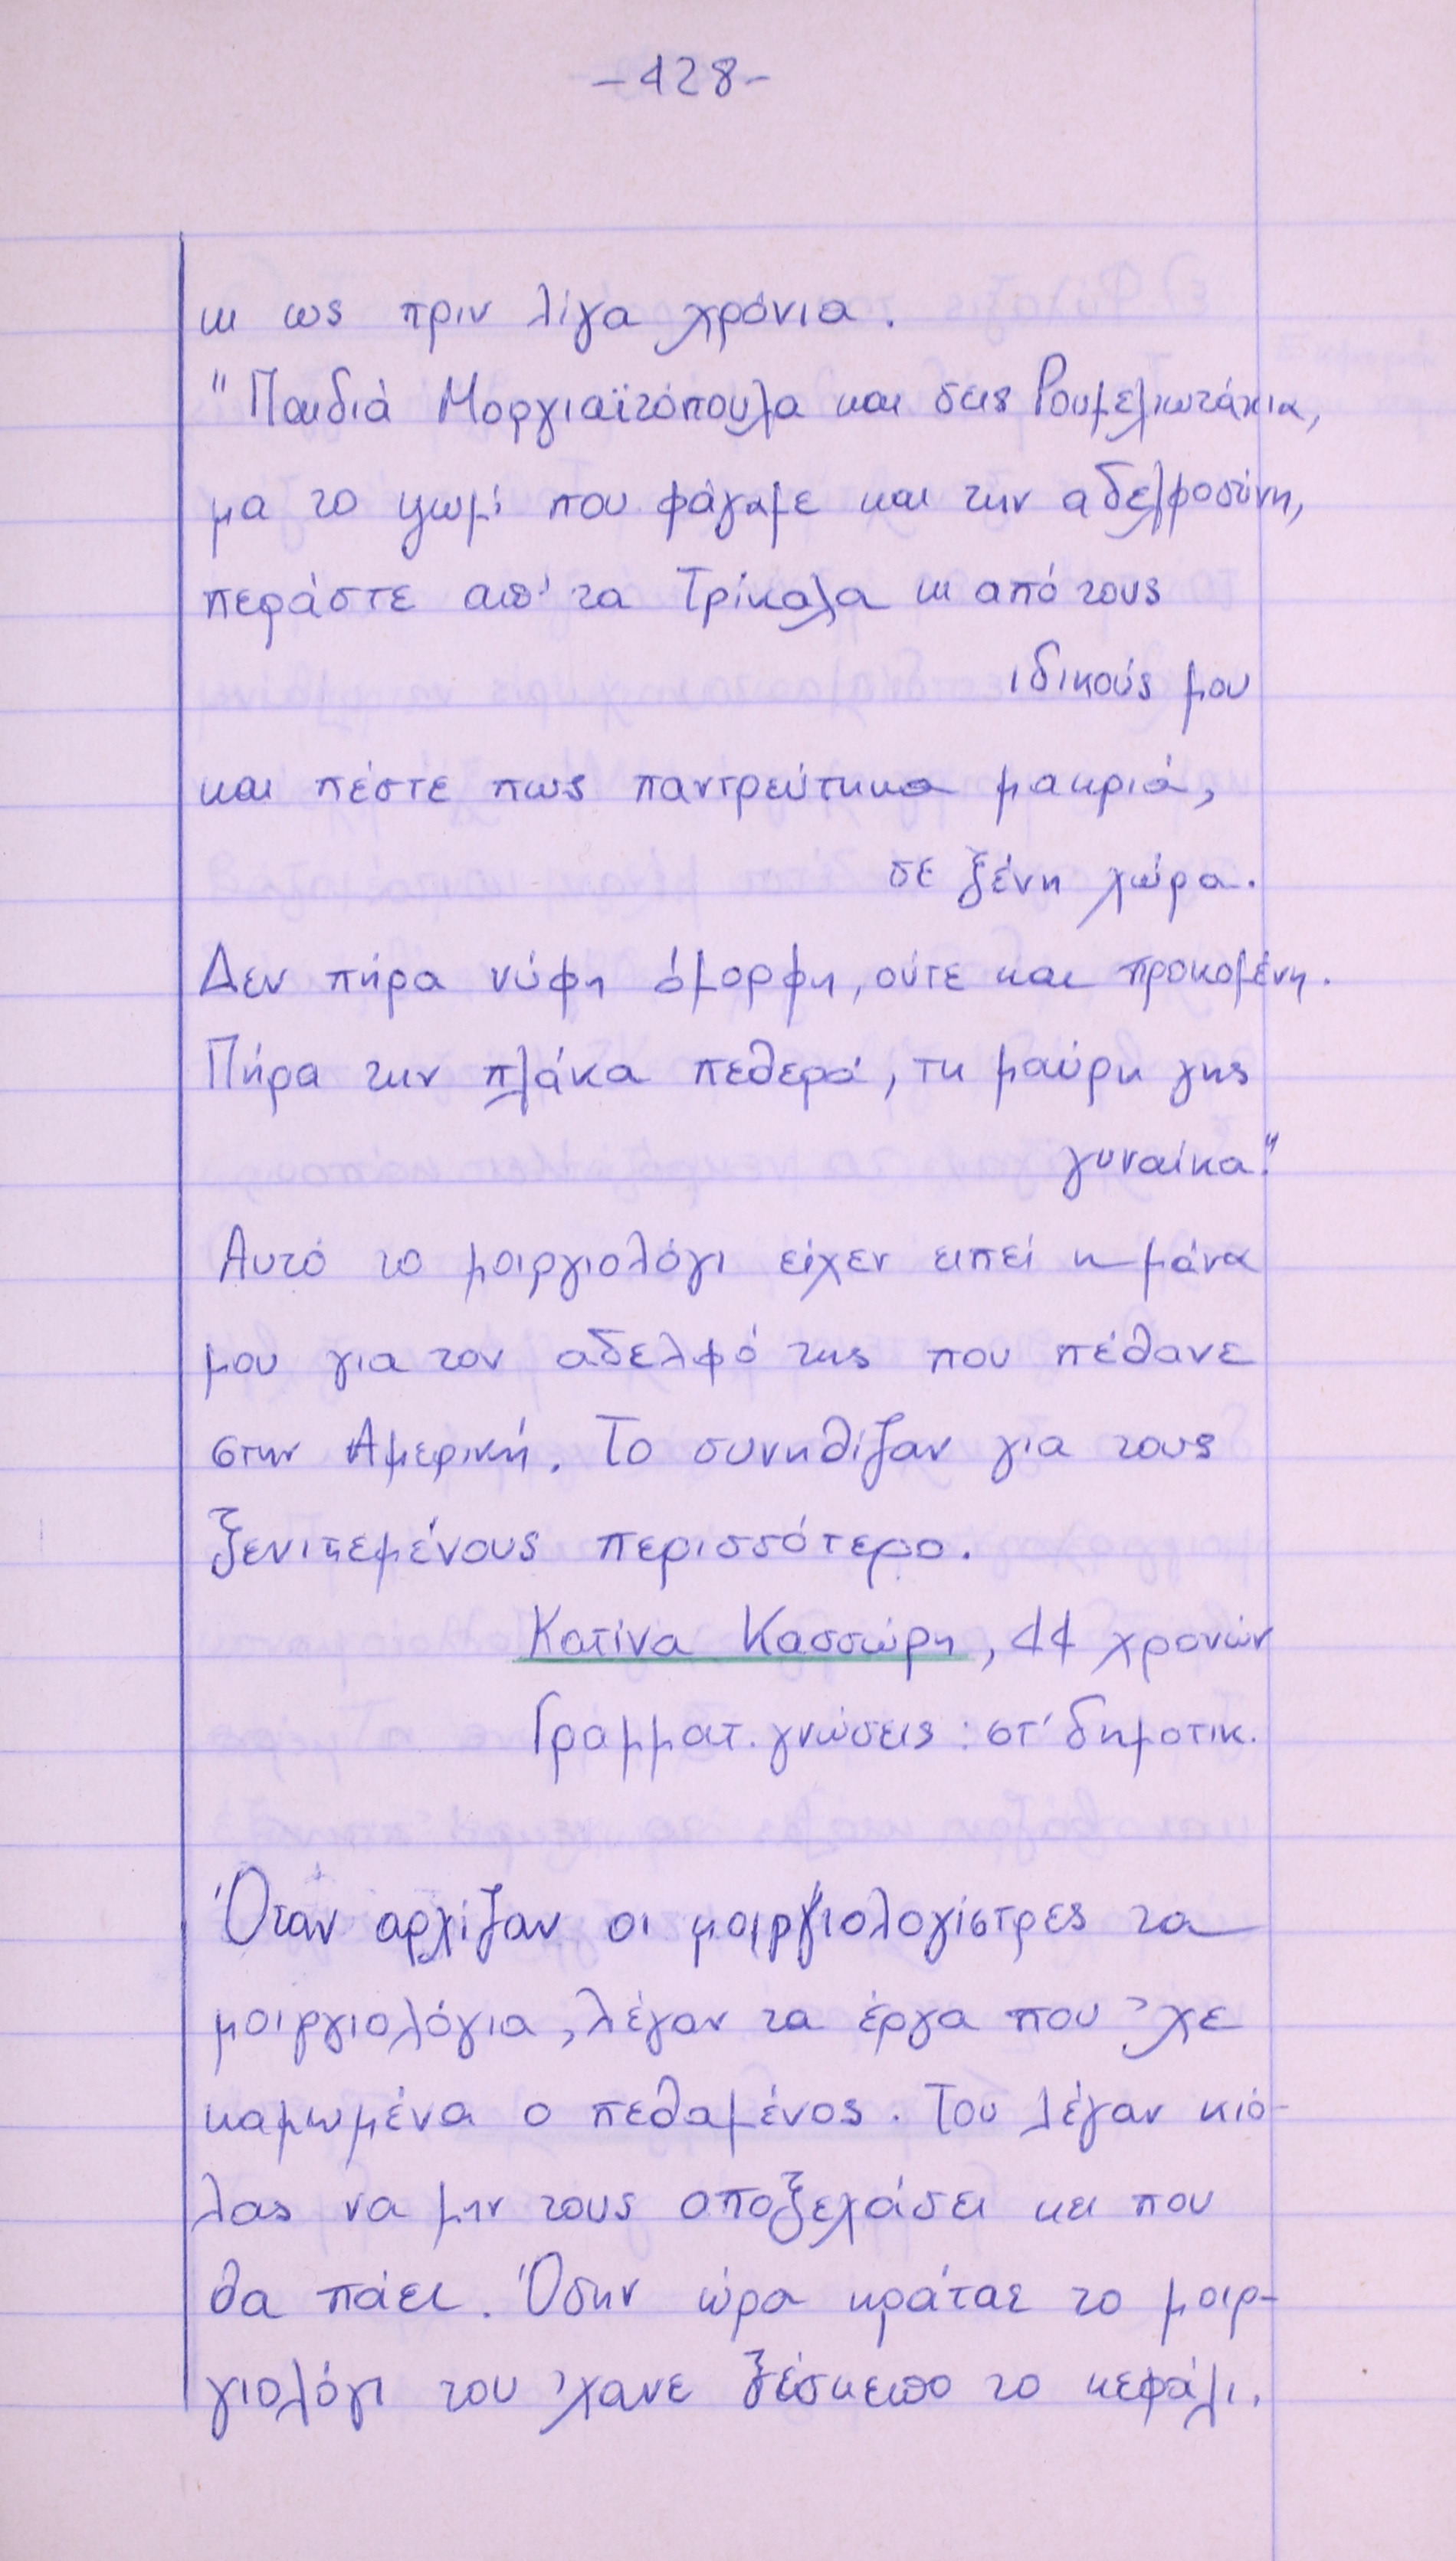 -428-
κι ως πριν λίγα χρόνια.
"Παιδιά Μοργιαϊτόπουλα και σεις Ρουμελιωτάκια,
μα το ψωμί που φάγαμε και την αδελφοσύνη,
περάστε απ' τα Τρίκαλα κι από τους
ιδικούς μου
και πέστε πως παντρεύτηκα μακριά,
σε ξένη χώρα.
Δεν πήρα νύφη όμορφη, ούτε και προκομένη.
Πήρα την πλάκα πεθερά, τη μαύρη γης
γυναίκα."
Αυτό το μοιργιολόγι είχεν ειπεί η μάνα
μου για τον αδελφό της που πέθανε
στην Αμερική. Το συνηθίζαν για τους
ξενιτεμένους περισσότερο.
Κατίνα Κασσώρη, 44 χρονών
Γραμματ. γνώσεις: στ' δημοτικ.
Όταν αρχίζαν οι μοιργιολογίστρες τα
μοιργιολόγια, λέγαν τα έργα που 'χε
καμωμένα ο πεθαμένος. Του λέγαν κιό-
λας να μην τους αποξεχάσει κει που
θα πάει. Όσην ώρα κράταε το μοιρ-
γιολόγι του 'χανε ξέσκεπο το κεφάλι.